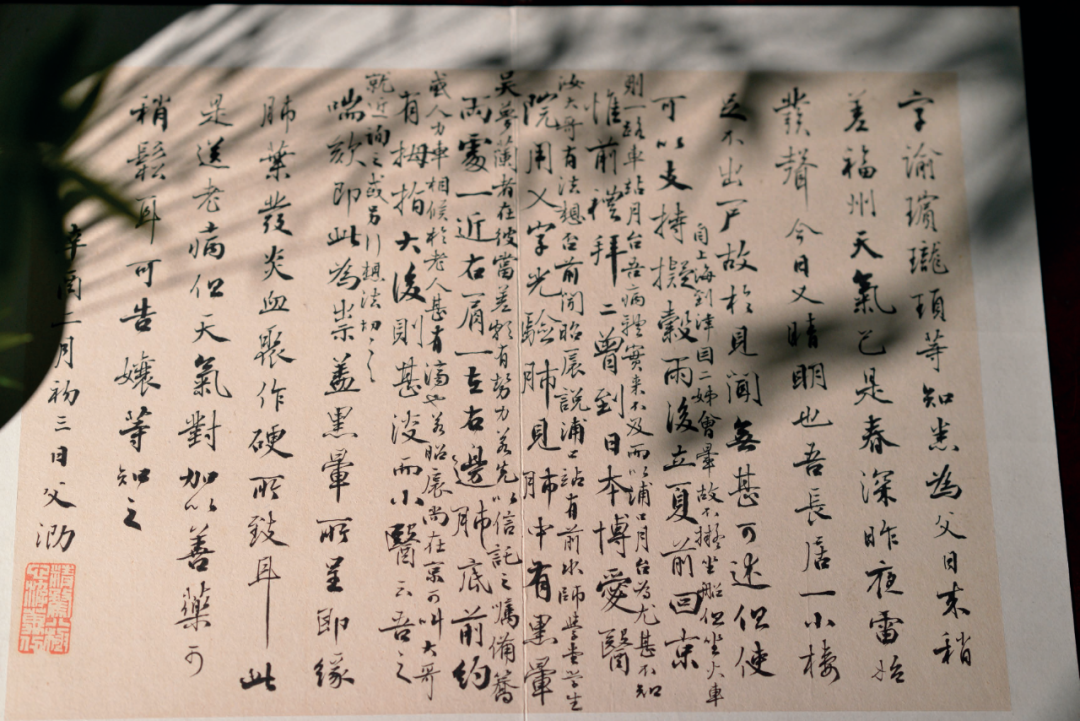 字諭璸瓏頊等知悉為父日來稍
差福州天氣已是春深昨夜雷始
發聲今日又晴明也吾長居一小樓
足不出戶故於見聞無甚可述但使
自上海到津因二姊會暈故不擬坐船但坐火車
可以支持擬穀雨後立夏前回京
則一路車站月台吾病體實來不及而以浦口月台為尤甚不知
惟前禮拜二曾到日本博愛醫
汝大哥有法想否前聞昭扆說浦口站有前水師學堂學生
院用乂字光驗肺見肺中有黑暈
吳夢蘭者在彼當差頗有勢力若先以信託之囑備籌
兩處一近右肩一左右邊肺底前約
或人力車相候於老人甚有濟也若昭扆尚在京可叫大哥
有拇指大後則甚淡而小醫云吾之
就近詢之或另行想法切切
喘欬即此為祟蓋黑暈所呈即緣
肺葉發炎血聚作硬所致耳此
是送老病但天氣對加以善藥可
稍鬆耳可告孃等知之
辛酉二月初三日父泐